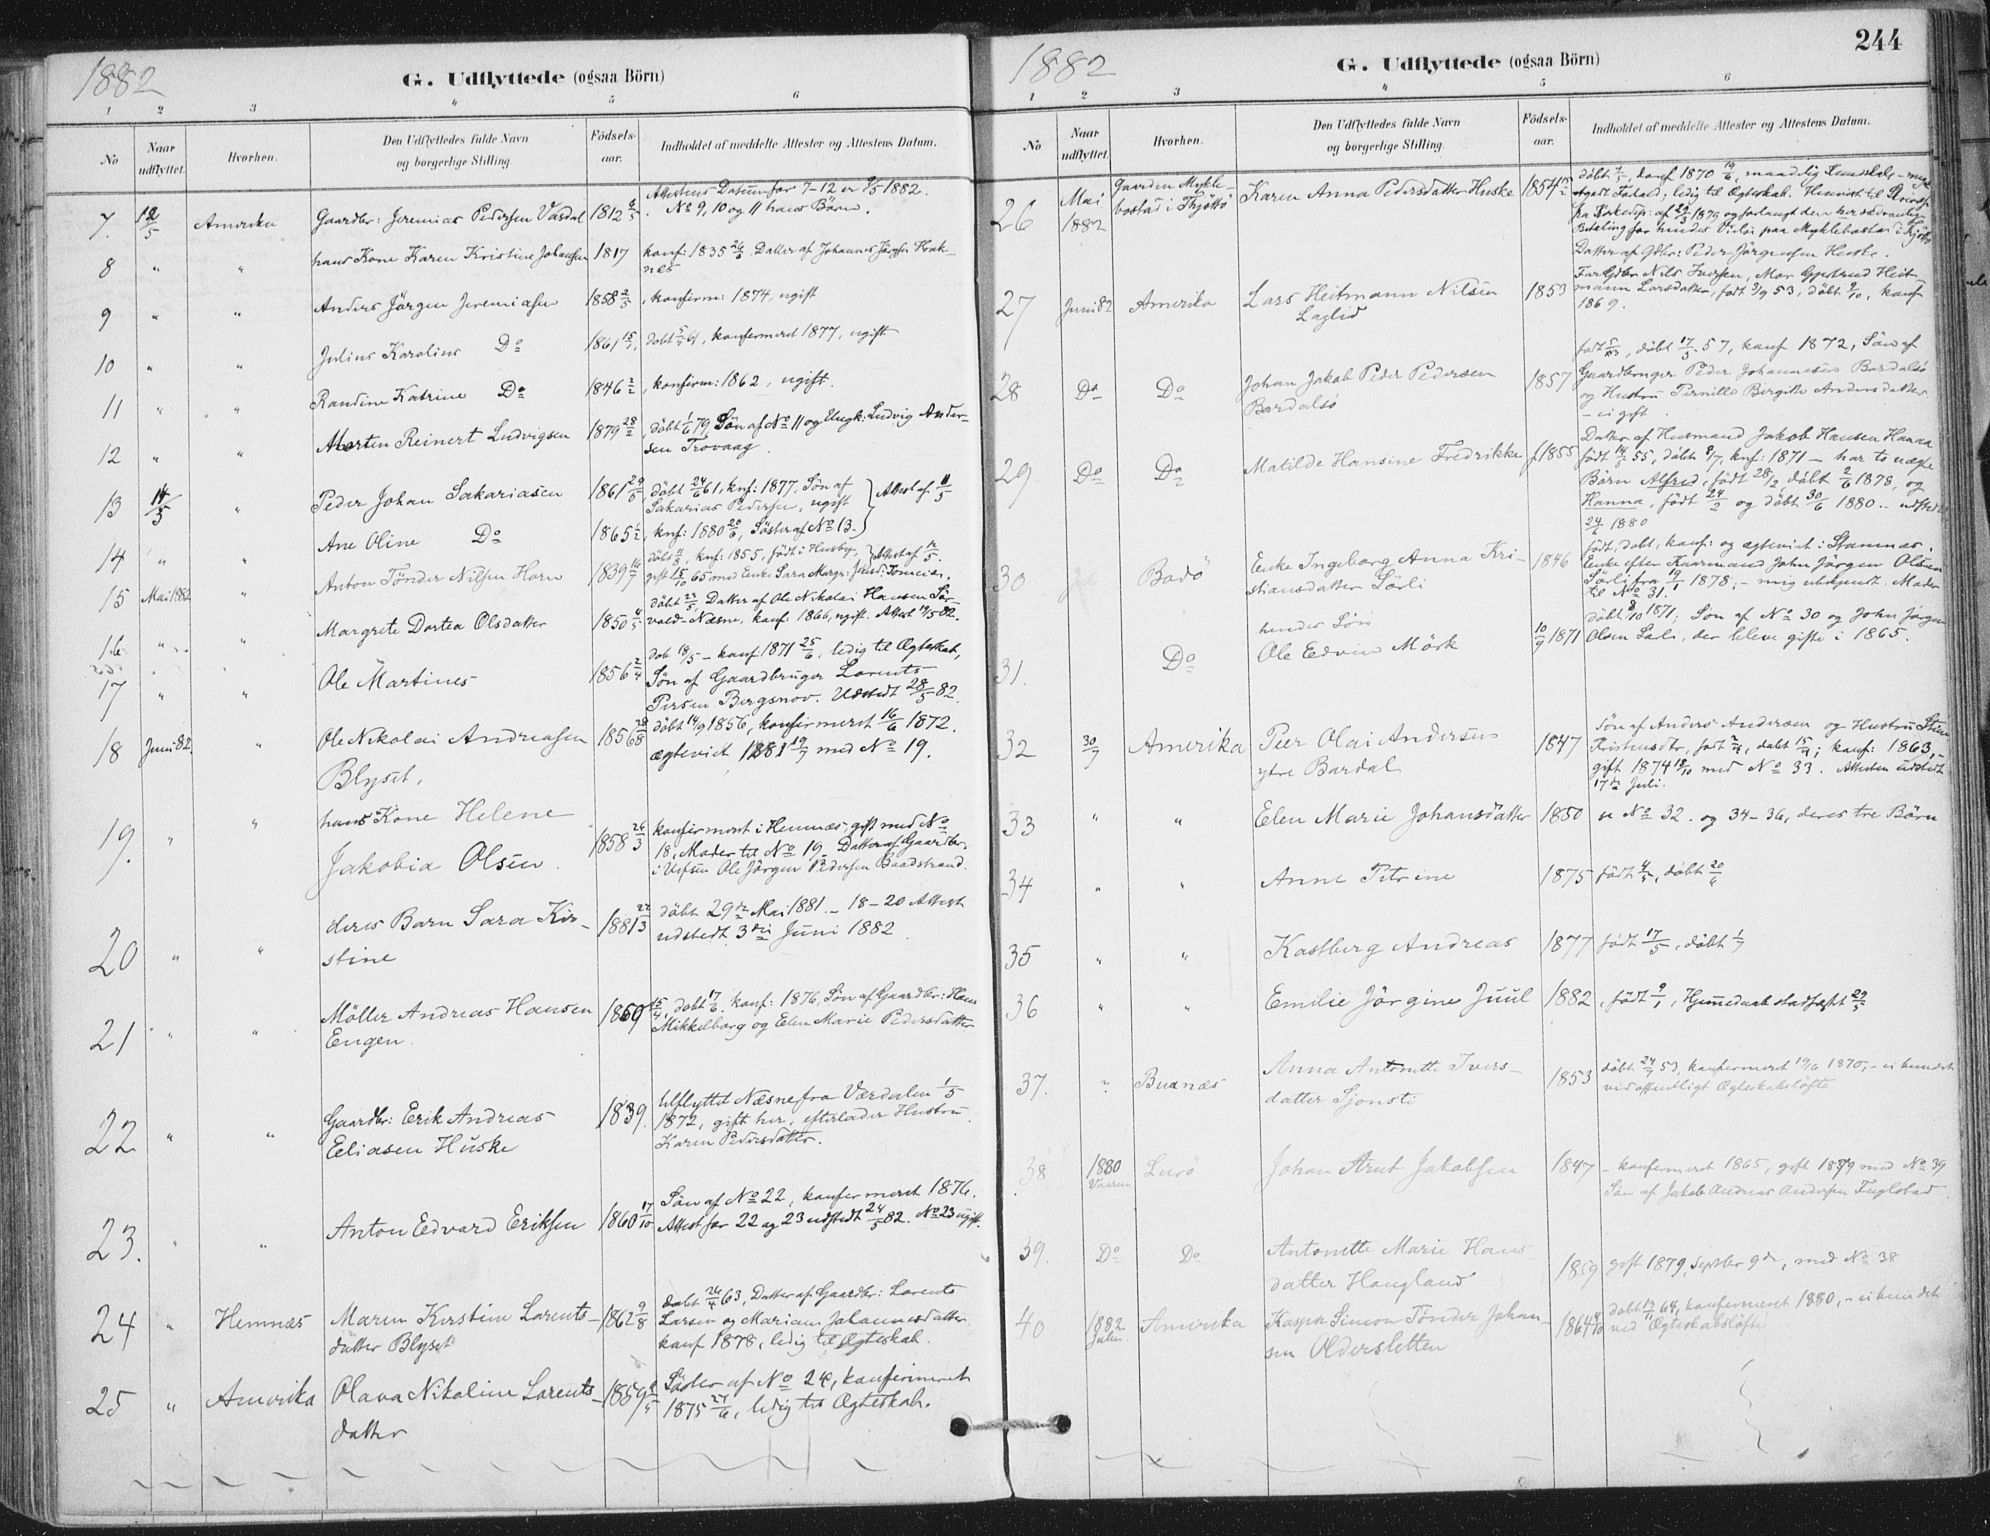 1882
G. Udflyttede (ogsaa Börn)
1 2 3 " 5 6
No
Naar udflyttet.
Hvorhen.
Den Udflyttedes fulde Navn og borgerlige Stilling.
Födsels-aar.
Indholdet af meddelte Attester og Attestens Datum.
Attestens Datum for 7-12 er 9/5 1882.
7. 12/5 Amerika Gaardbr: Jeremias Pedersen Vasdal 1812 No 9, 10 og 11 hans Börn.
8 " " hans Kone Karen Kristine Johansen 1817 konf: 1835 Datter af Johannes
9 " " Anders Jörgen Jeremiasen 1858 konfirm: 1874, ugift
10 " " Julius Karolius Do 1861 döbt konfirmeret 1877, ugift
11 " " Randine Katrine Do 1846 2/2, konfirm: 1862, ugift.
12 " " Morten Reinert Ludvigsen 1879 28/2 döbt 1/6 79, Sön af No 11 og Ungk: Ludvig Andersen Trovaag
13 14/5 " Peder Johan Sakariasen 1861 29/5 döbt 24/6 61, knf: 1877, Sön af
Sakarias Pedersen, ugift Attest af 11/5
14 " " Ane Oline Do 1865 knf: 1880 20/6, Söster af No 13.
15 Mai 1882 " Anton Tönder Nilsen Horn 1839 knf: 1855, född i Husby, Attest af
gift 15/10 65 med Enke Sara Margr:
16 " " Margrete Dortea Olsdatter 1850 döbt 23/5, Datter af Ole Nikolai Hansen
Næsne, konf. 1866, ugift. Attest
17 " " Ole Martines 1856 2/4 döb 18/5 - konf: 1871 25/6, ledig til Ægteskab,
Sön af Gaardbruger Lorents
Persen Bergsnov. Udstedt 28/5 82.
18 Juni 82. " Ole Nikolai Andreasen 1856 28/8 döbt 14/9 1856, konfirmeret 16/6 1872.
Blyset. ægteviet 1881 19/7 med No 19.
19. " " hans Kone Helene
Jakobia Olsen 1858 26/3 konfirmeret i Hemnæs, gift med No
18, Moder til No 19. Datter af Gaardbr.
i Vefsen Ole Jörgen Pedersen Baadstrand.
20 " " deres Barn Sara Kir-
stine 1881 22/3 döbt 29de Mai 1881. - 18-20 Attest
udstedt 3die Juni 1882
21 " " Möller Andreas Hansen
Engen 1860 15/4, döbt 17/6. konf: 1876, Sön af Gaardbr: Hans
Mikkelborg og Elen Marie Pedersdatter
22 " " Gaardbr: Erik Andreas
Eeliasen Huske 1839. Udflyttet Næsne fra Værdalen 1/5
1872, gift her, efterlader Hustru
Karen Pedersdatter.
23. " " Anton Edvard Eriksen 1860 17/10 Sön af No 22, konfirmeret 1876.
Attest for 22 og 23 udstedt 24/5 82. No 23 ugift.
24 " Hemnæs Maren Kirstine Lorents-
datter Blyset 1862 9/8 Döbt 26/4 63, Datter af Gaardbr: Lorents
Larsen og Mariam Johannesdatter.
konf 1878, ledig til Ægteskab.
25 " Amerika Olava Nikoline Lorents-
datter 1859 Söster af No 24, konfirmeret
1875 27/6, ledig til Ægteskab.
1882
G. Udflyttede (ogsaa Börn)
244
1 2 3 " 5 6
No
Naar udflyttet.
Hvorhen.
Den Udflyttedes fulde Navn og borgerlige Stilling.
Födsels-aar.
Indholdet af meddelte Attester og Attestens Datum.
26 Mai 1882 Gaarden Myklebostad i Tjöttö Karen Anna Pedersdatter Huske 1854 döbt konf 1870 19/6, maadelig Kundskab - meget
ledig til Ægteskab. Henvist til
1879 og forlangt den her sædvanlig
Betaling for hendes Pleie paa Myklebostad i Tjöttö
Datter af Gdbr: Peder Jörgensen Huske.
27 Juni 82 Amerika Lars Heitmann Nilsen
Laglid 1853 Far Gdbr Nils Iversen, Mor Gjertrud Heit-
mann Larsdatter, født 3/9 53, döbt 9/10, konf
1869.
28 Do Do Johan Jakob Peder Pedersen
Bardalsö 1857 født döbt 17/5 57, konf 1872, Sön af
Gaardbruger Peder Johannesen Bardalsö
og Hustru Pernille Birgitte Andersdatter
- ei gift.
29 Do Do Matilde Hansine Fredrikke f. 1855 Datter af Husmand Jakob Hansen
född 55, döbt 8/7, knf: 1871 - har to uægte
Börn Alfred, född 28/2 döbt 2/6 1878, og
Hanna, född 24/2 og döbt 30/6 1880. - udstedt
1880
30 Bodö Enke Ingeborg Anna Kri-
stiansdatter Sörli 1846 född, döbt, konf: og ægteviet i Stamnæs.
Enke efter Kaarmand John Jörgen Olsen
Sörli fra 1878, - mig ubekjendt. Moder
til No 31.
31. Do hendes Sön
Ole Edvin Mörk 10/9 1871 döbt 8/10 1871, Sön af No 30 og John Jörgen
Olsen Sörli, der bleve gifte i 1865.
32 30/7 Amerika Peer Olai Andersen
ytre Bardal 1847 Sön af Anders Andersen og Hustru Stine
Kristensdtr, født döbt konf: 1863, -
gift 1874 18/10 med No 33. Attesten udstedt
17de Juli.
33 " " Elen Marie Johansdatter 1850 se No 32. og 34-36, deres tre Börn
34 " " Anne Petrine 1875 född 4/5, döbt 20/6
35 " " Kastberg Andreas 1877 född 17/5, döbt 1/7
36 " " Emilie Jörgine Juul 1882, född 9/1, Hjemmedaab stadfæstet 29/5
37. " Buanæs Anna Antonette Ivers-
datter Sjonsti 1853 döbt 24/7 53, konfirmeret 19/6 1870, - ei bundet
ved offentligt Ægteskabslöfte
38. 1880 Vaaren Lurö Johan Arnt Jakobsen 1847 - konfirmeret 1865, gift 1879 med No 39
Sön af Jakob Andreas Andersen Fuglstad
39. Do Do Antonette Marie Hans-
datter Haugland 1859 gift 1879, Septbr 9de, med No 38
40 1882 Julen Amerika Kaspar Simon Tönder Johan-
sen Oldersletten 1864 döbt 64, konfirmeret 1880, - ei bundet
ved Ægteskabslöfte